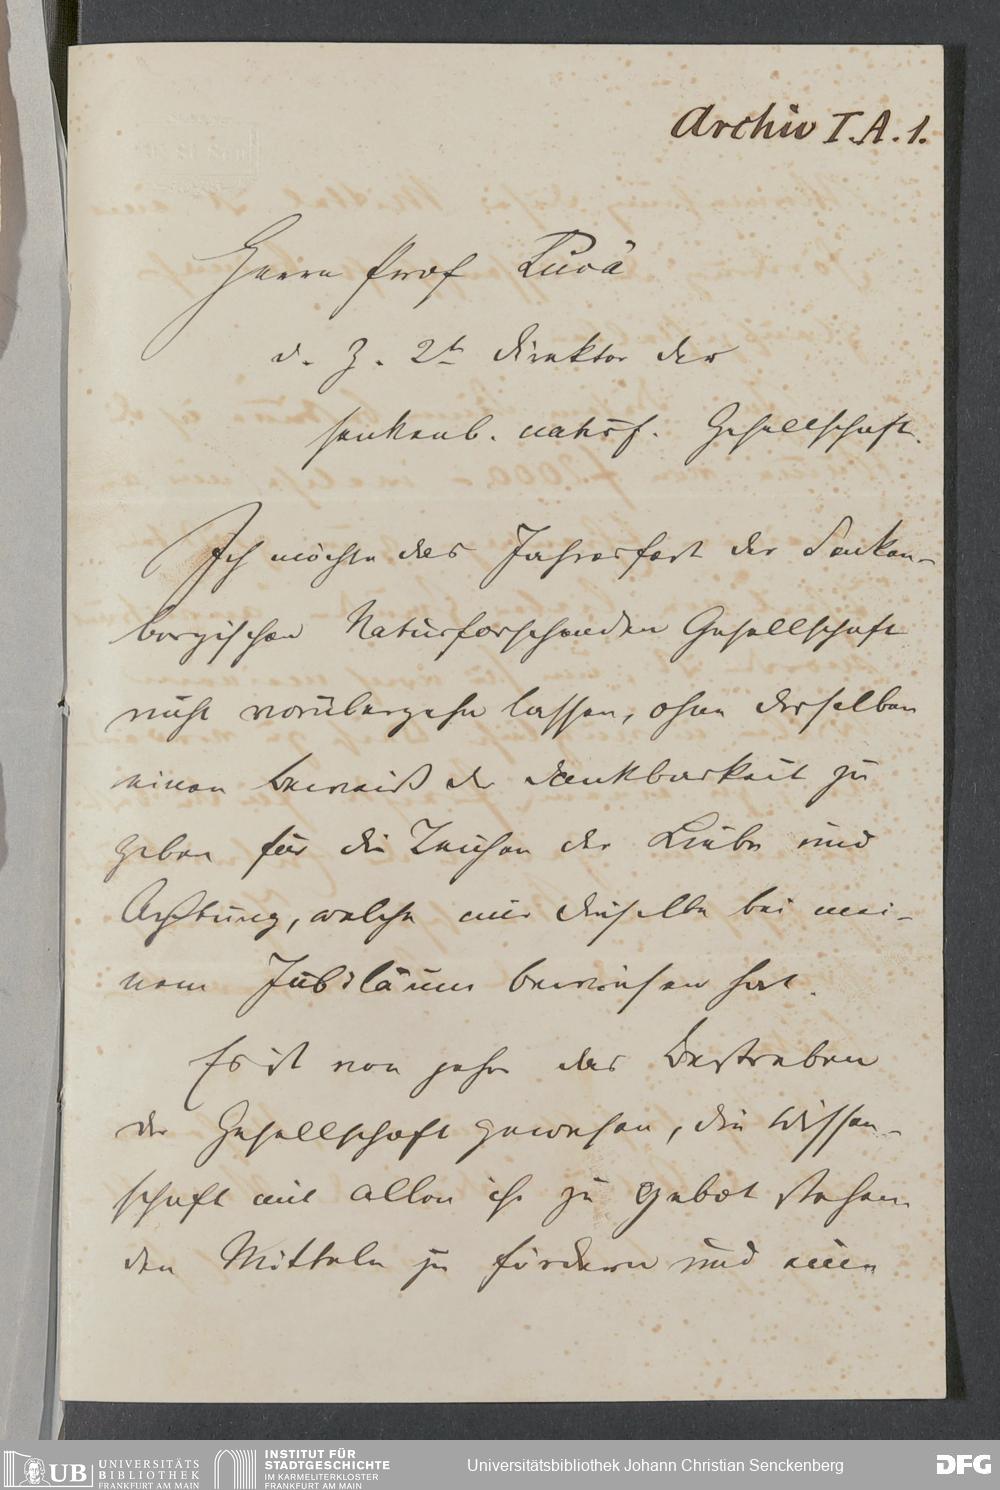 Archiv I.A.1.
Herrn Prof Lucä
d. Z. 2t Direktor der
senkenb. natrf. Gesellschaft.
Ich möchte das Jahresfest der Senken-
bergischen Naturforschenden Gesellschaft
nicht vorübergehn lassen, ohne derselben
einen Beweiß der Dankbarkeit zu
geben für die Zeichen der Liebe und
Achtung, welche mir dieselbe bei mei-
nem Jubiläum bewiesen hat.
Es ist von jeher das Bestreben
der Gesellschaft gewesen, die Wissen-
schaft mit allen ihr zu Gebot stehen
den Mitteln zu fördern und eine
UB UNIVERSITÄTS
BIBLIOTHEK
FRANKFURT AM MAIN
INSTITUT FÜR
STADTGESCHICHTE
IM KARMELITERKLOSTER
FRANKFURT AM MAIN
Universitätsbibliothek Johann Christian Senckenberg
DFG